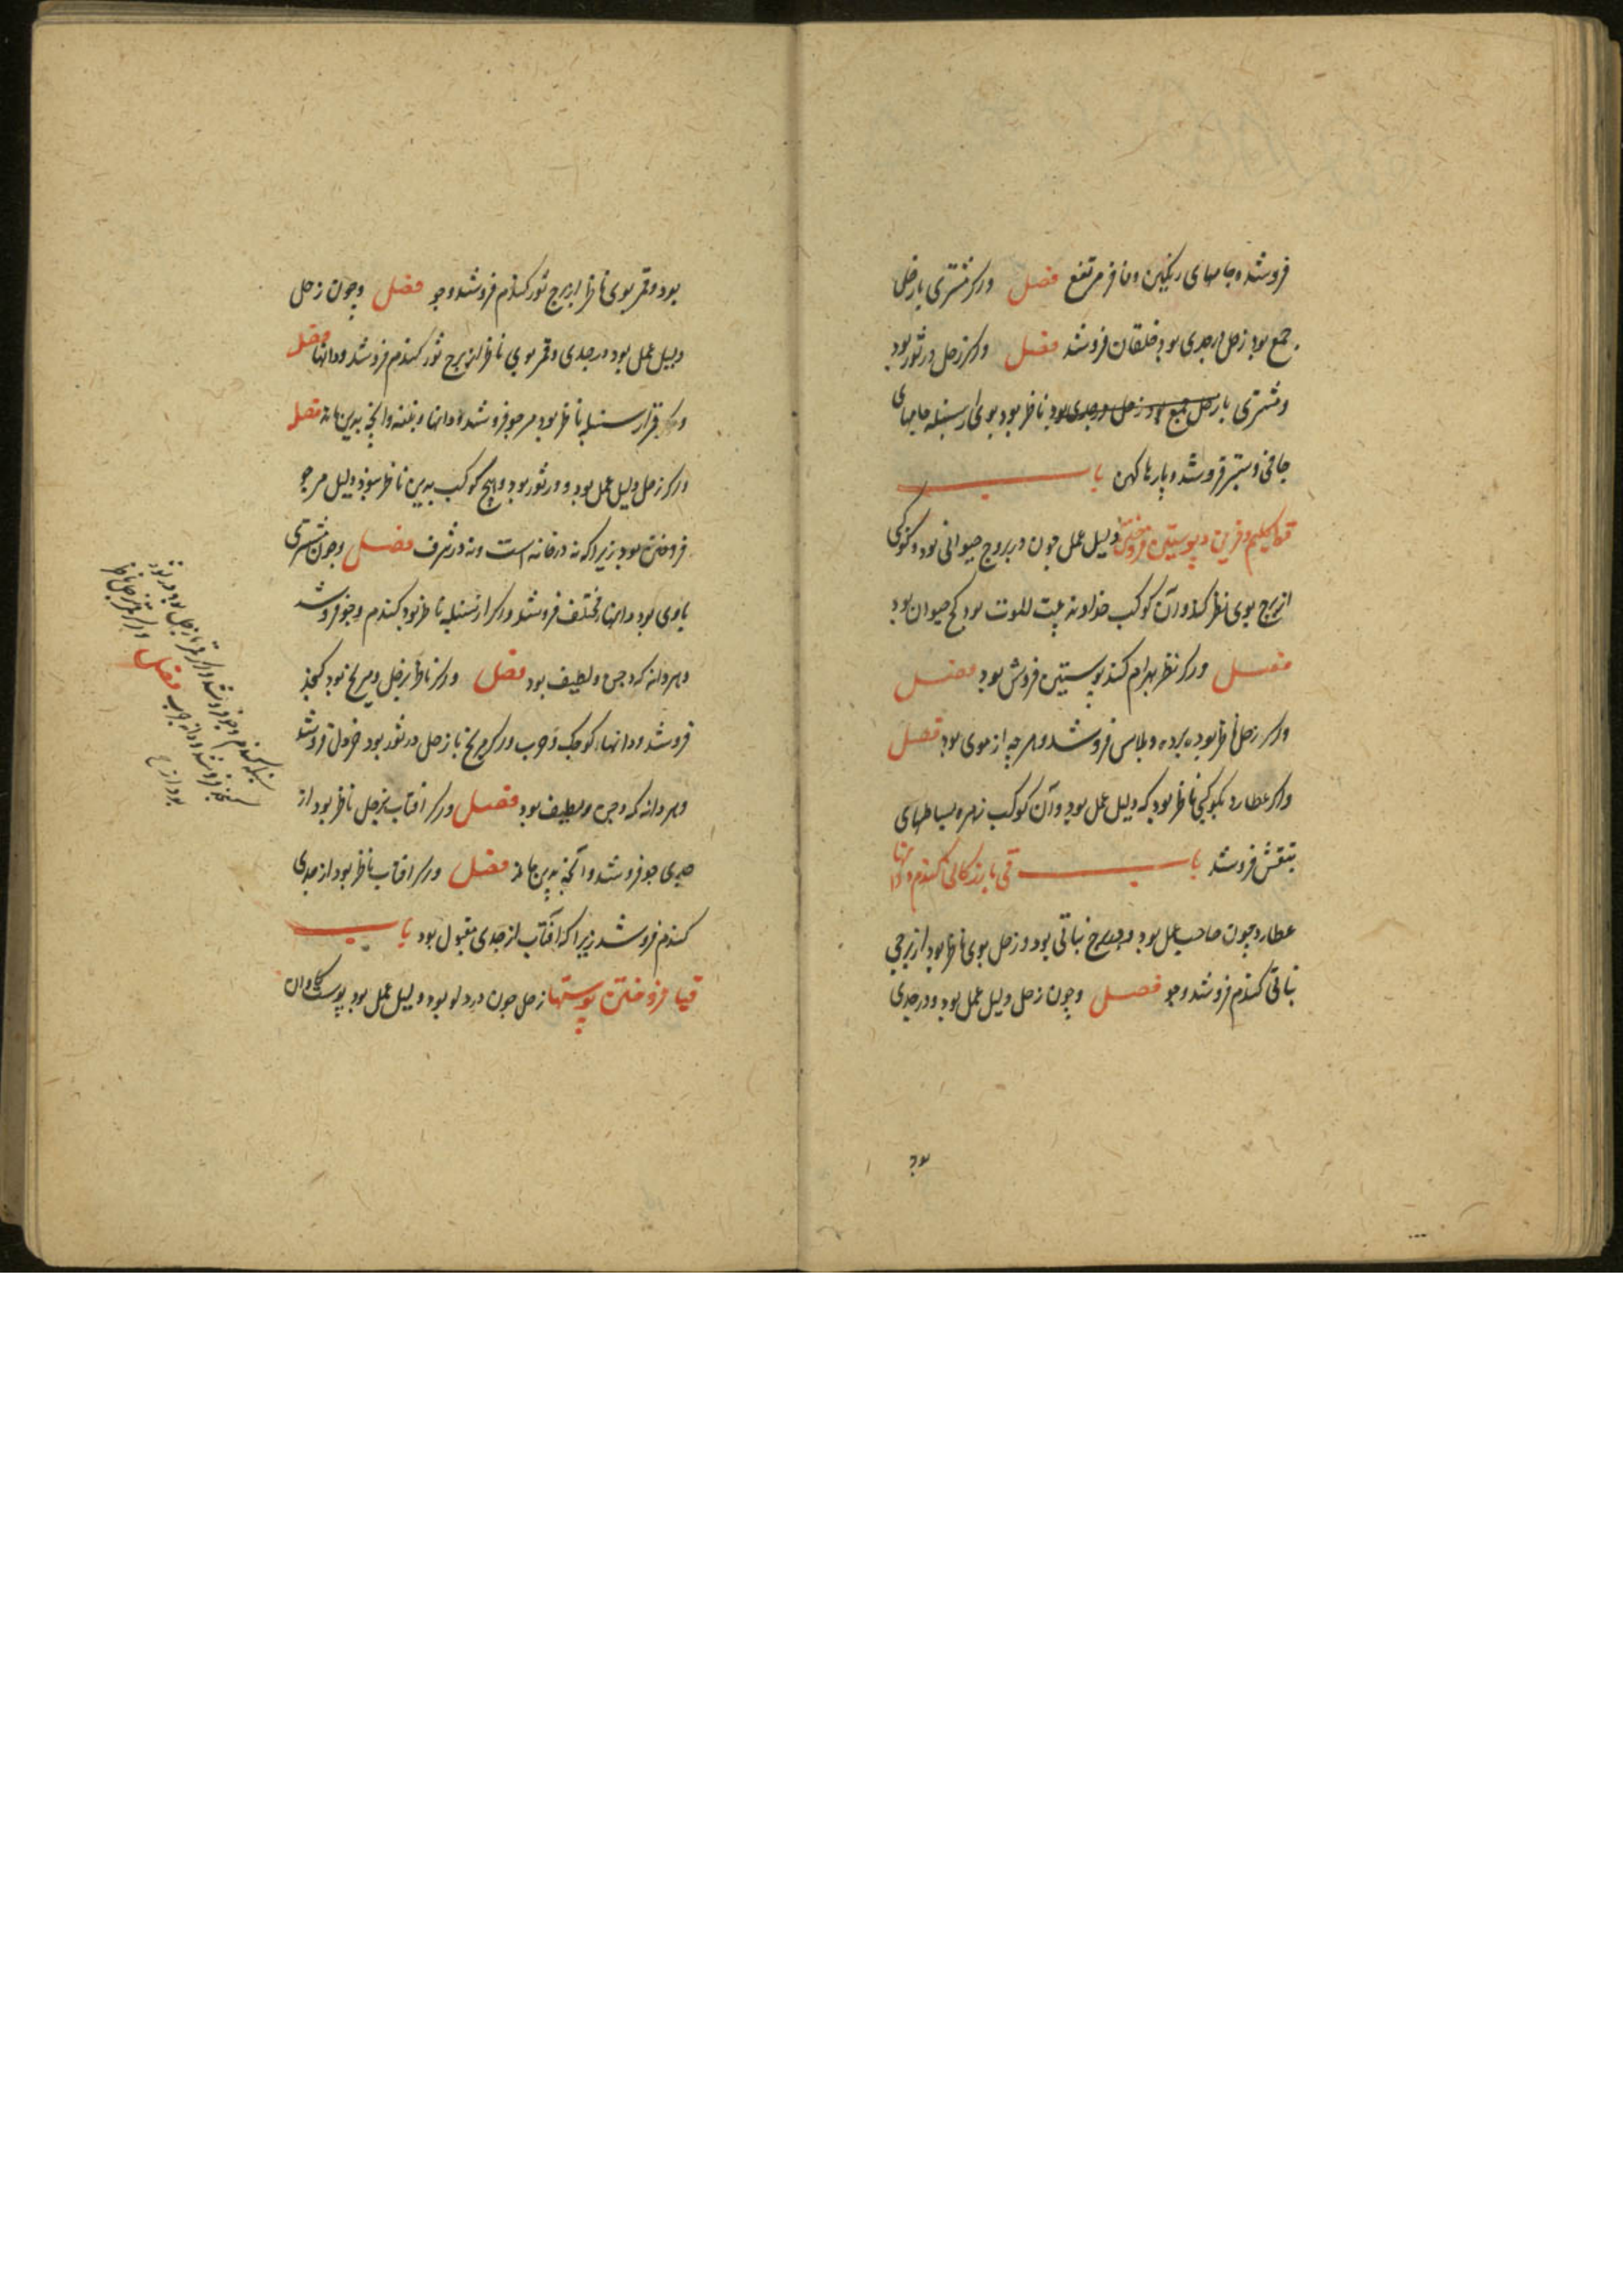 فروشنده جامهای رنگین و فاخر مرتفع فصل ورکر مشتری با زحل
جمع بود زحل در جدی بود خلقان فروشد فصل ورکر زحل در ثور بود
و مشتری با زحل جمع بود زحل در جدی بود ناظر بود بوی از سنبله جامهای
جافی و ستبر فروشد و پارها کهن باب
قط کلیم و فرش و پوستین فروختن دلیل عمل چون در بروج حیوانی بود و کوکبی
از برج بوی نظر کند و آن کوکب خداوند بیت الموت بود کج حیوان بود
فصل ورکر نظر بهرام کند پوستین فروش بود فصل
ورکر زحل ناظر بود برده و پلاس فروشد و هر چه از موی بود فصل
واکر عطارد بکوکبی ناظر بود که دلیل عمل بود و آن کوکب زهره بساطهای
بنقش فروشد باب قی بازرکانی کندم و دانها
عطارد چون صاحب عمل بود و ببرج نباتی بود و زحل بوی ناظر بود از برجی
نباتی کندم فروشد و جو فصل وچون زحل دلیل عمل بود و در جدی
بود
بود و قمر بوی ناظر از برج ثور کندم فروشد و جو فصل وچون زحل
دلیل عمل بود در جدی و قمر بوی ناظر از برج ثور کندم فروشد و دانها فصل
ورکر قمر از سنبله ناظر بود هم جو فروشد و دانها و بنلنه و انچ بدین ماند فصل
ورکر زحل دلیل عمل بود و در ثور بود و هیچ کوکب بدین ناظر نبود دلیل هم جو
فروختن بود زیرا که نه در خانه است و نه در شرف فصل وچون مشتری
با وی بود دانهاء مختلف فروشد ورکر از سنبله ناظر بود کندم و جو فروشد
و هر دانه که دجن و لطیف بود فصل ورکر ناظر بزحل و مریخ بود کنجد
فروشد و دانهاء کوچک و حرب ورکر مریخ با زحل در ثور بود خردل فروشد
و هر دانه که دجن و لطیف بود فصل ورکر افتاب بزحل ناظر بود از
جدی جو فروشد و آنچ بدین ماند فصل ورکر افتاب ناظر بود از جدی
کندم فروشد زیرا که آفتاب از جدی مقبول بود باب
قیا فروختن پوستها زحل چون در دلو بود دلیل عمل بود پوست کاوان
سنبله کندم و جو فروشد ورکر قمر با زحل بود در ثور
کنجد فروشد و دانه چرب فصل ورکر قمر بزحل ناظر
بود از